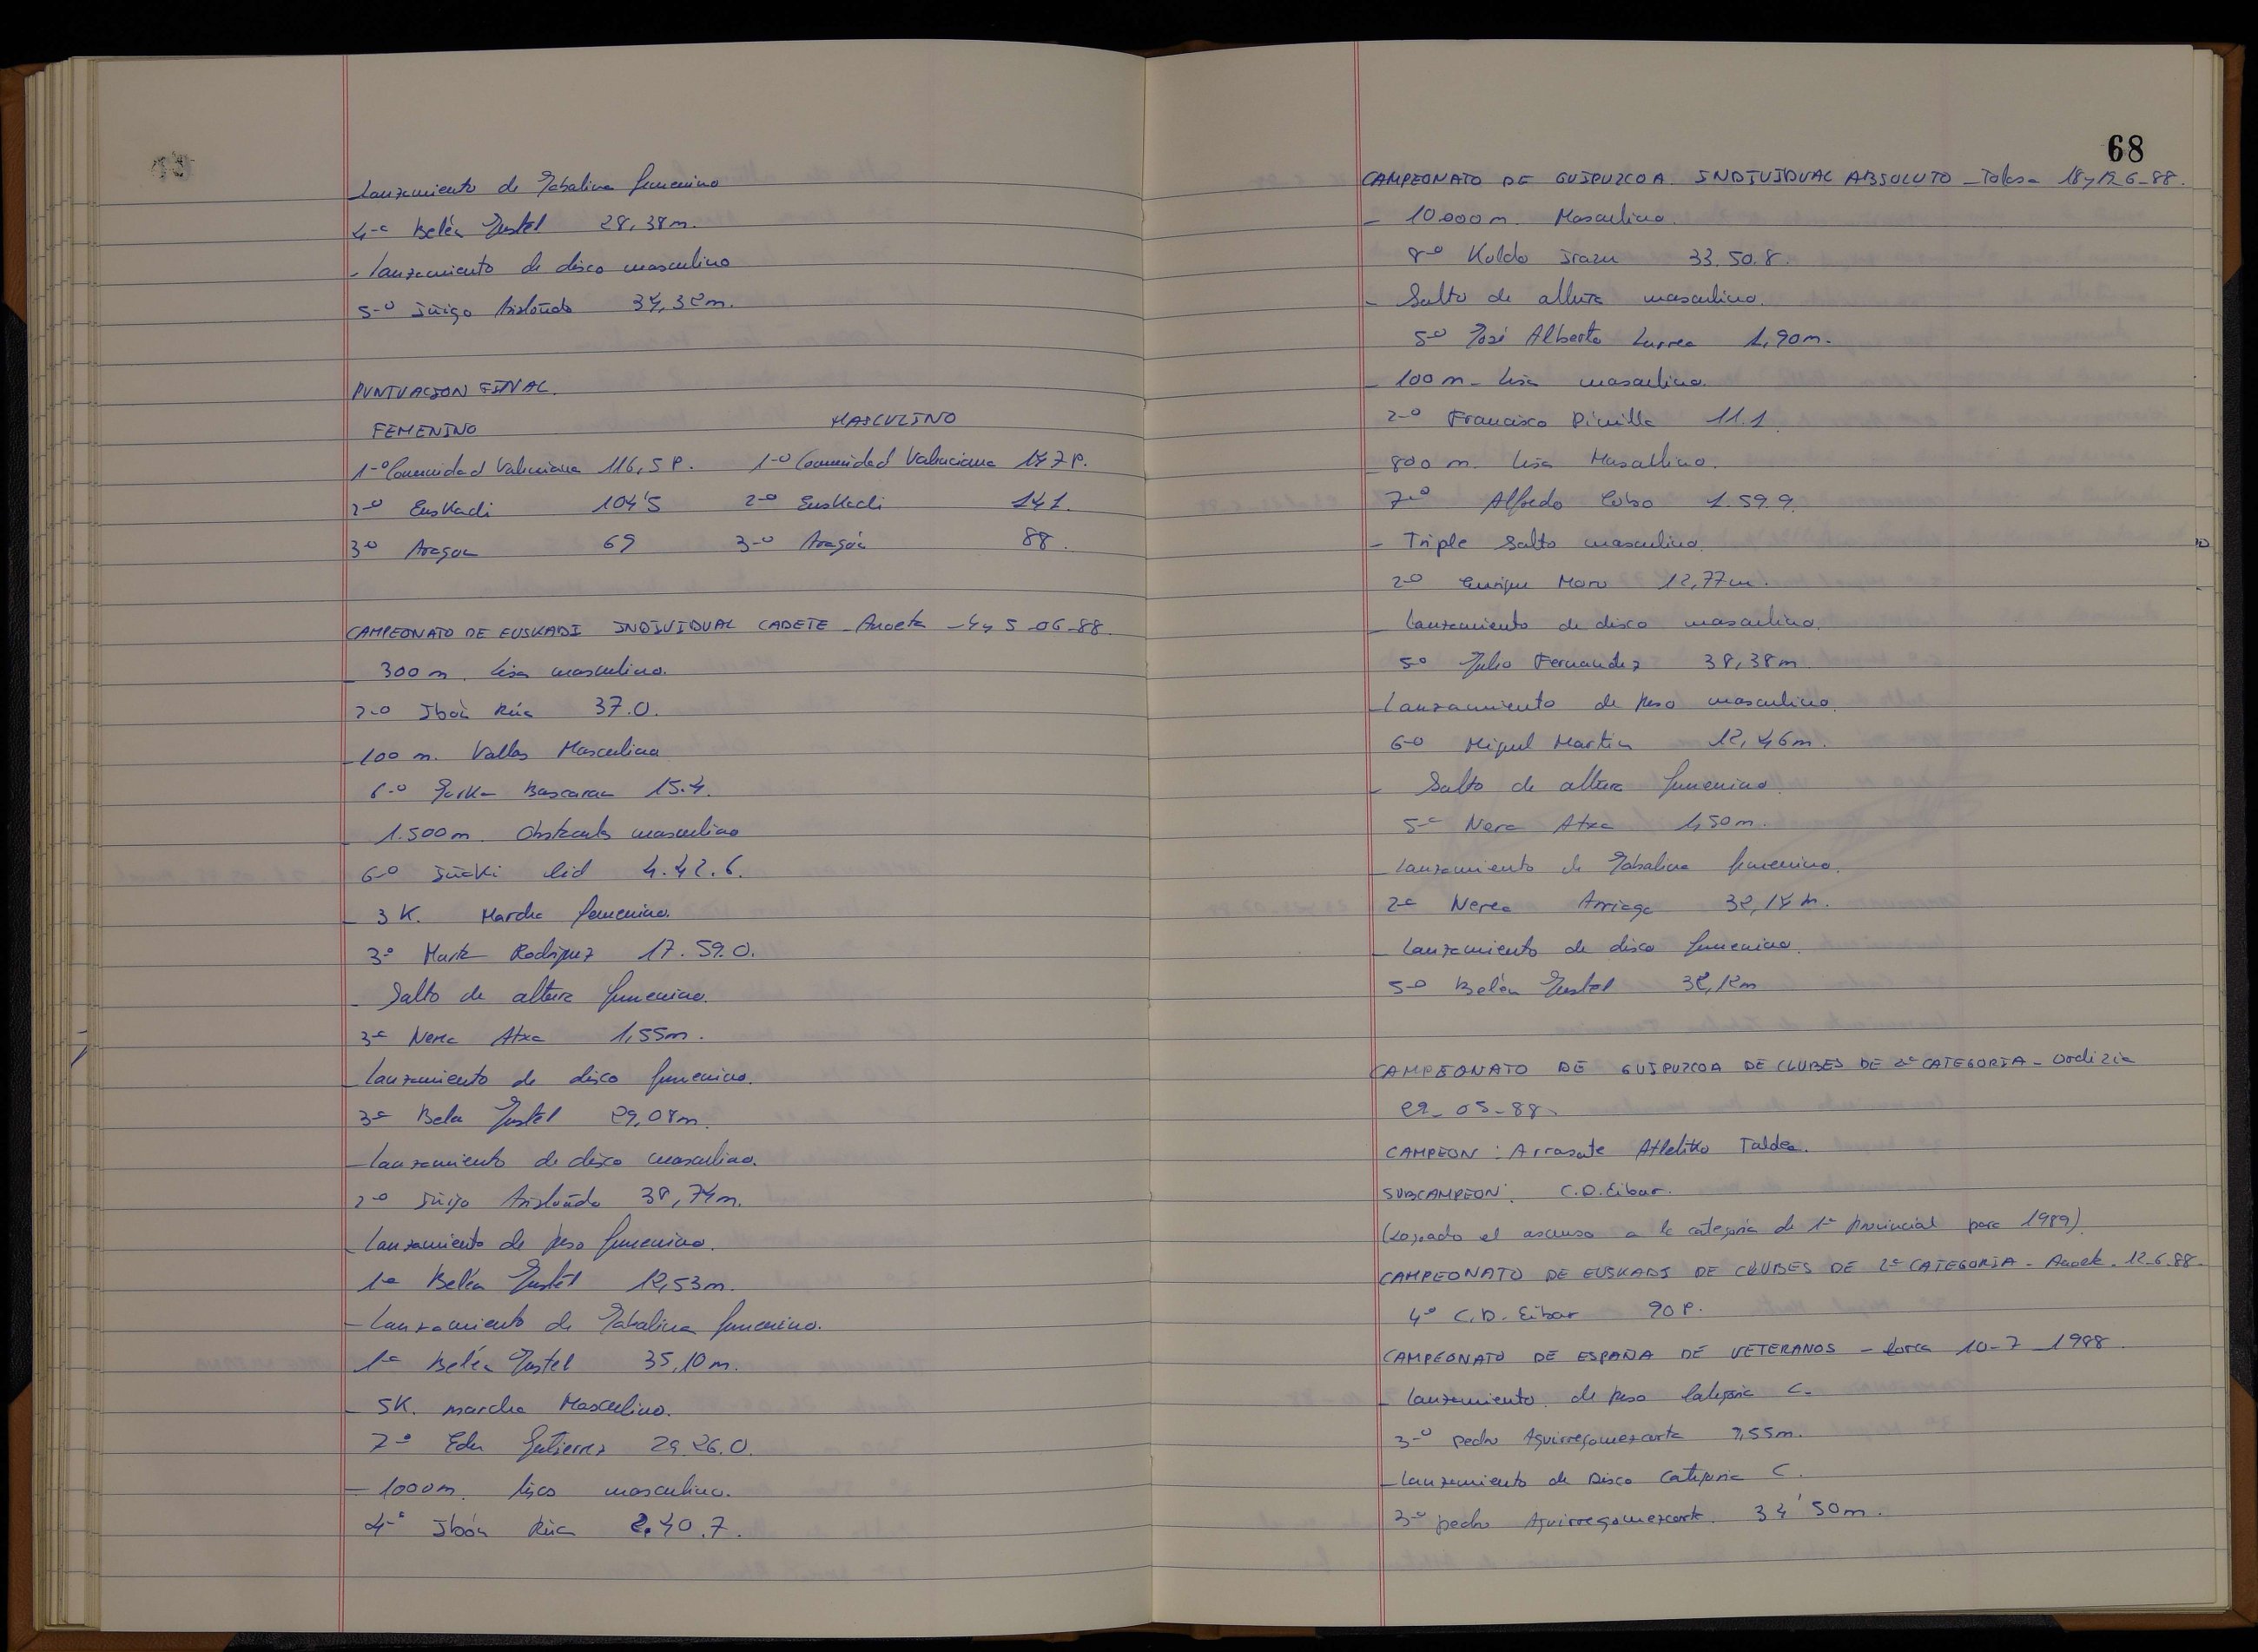 Lanzamiento de Jabalina femenino
4-ª Belén Justel 28,38m.
- Lanzamiento de disco masculino
5-º Iñigo Aristondo 34,32m.
PUNTUACION FINAL.
FEMENINO MASCULINO
1-º Comunidad Valenciana 116,5 P. 1-º Comunidad Valenciana 147 P.
2-º Euskadi 104'5 2-º Euskadi 141.
3º Aragon 69 3-º Aragón 88.
CAMPEONATO DE EUSKADI INDIVIDUAL CADETE - Anoeta - 4 y 5-06-88.
- 300 m. lisos masculino.
2-º Ibón Rúa 37.0.
- 100 m. Vallas Masculino
6-º Gorka Bascaran 15.4.
- 1.500 m. Obstaculos masculino
6-º Iñaki Cid 4.42.6.
- 3 K. Marcha femenino.
3ª Marta Rodriguez 17.59.0.
- Salto de altura femenino.
3-ª Nerea Atxa 1,55m.
- Lanzamiento de disco femenino.
3-ª Belen Justel 29,08m.
- Lanzamiento de disco masculino.
2-º Iñigo Aristondo 38,74m.
- Lanzamiento de peso femenino.
1-ª Belén Justel 12,53m.
- Lanzamiento de Jabalina femenino.
1-ª Belén Justel 35,10m.
- 5K. marcha Masculino.
7-º Edu Gutierrez 29.26.0.
- 1000m. lisos masculino.
4-º Ibón Rúa 2.40.7.
68
CAMPEONATO DE GUIPUZCOA INDIVIDUAL ABSOLUTO - Tolosa 18 y 19-6-88.
- 10.000 m. Masculino.
8-º Koldo Irazu 33.50.8.
- Salto de altura masculino.
5-º José Alberto Larrea 1,90m.
- 100 m- lisos masculino.
2-º Francisco Pinilla 11.1.
- 800 m. lisos Masculino.
7-º Alfredo Cobo 1.59.9.
- Triple Salto masculino.
2-º Enrique Moro 12,77m.
- Lanzamiento de disco masculino.
5º Julio Fernandez 38,38m.
- Lanzamiento de peso masculino.
6-º Miguel Martin 12,46m.
- Salto de altura femenino.
5-ª Nerea Atxa 1,50m.
- Lanzamiento de Jabalina femenino.
2-ª Nerea Arriaga 32,14m.
- Lanzamiento de disco femenino.
5-º Belén Justel 32,12m
CAMPEONATO DE GUIPUZCOA DE CLUBES DE 2ª CATEGORIA - Ordizia
29-05-88.
CAMPEON: Arrasate Atletiko Taldea.
SUBCAMPEON: C.D. Eibar.
(Logrado el ascenso a la categoria de 1ª provincial para 1989).
CAMPEONATO DE EUSKADI DE CLUBES DE 2ª CATEGORIA - Anoeta. 12-6-88.
4º C.D. Eibar 90 P.
CAMPEONATO DE ESPAÑA DE VETERANOS - Lorca 10-7-1988.
- Lanzamiento de peso Categoria C.
3-º Pedro Aguirregomezcorta 9,55m.
- Lanzamiento de Disco Categoria C.
3-º pedro Aguirregomezcorta 34'50m.